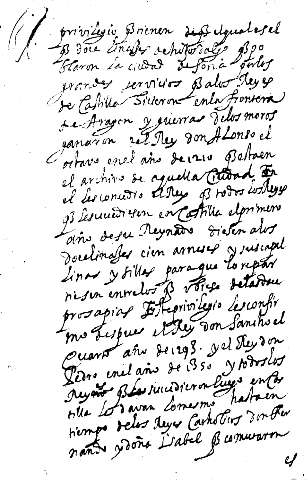 privilegio q tienen del qual es el
q doce linajes de hijosdalgo q po
blaron la ciudad de soria por los
grandes servicios q a los Reyes
de Castilla hicieron en la frontera
de Aragon y guerras de los moros
ganaron del Rey don Alonso el
octavo en el año de 1210 q esta en
el archivo de aquella Ciudad En
el les concedio el Rey q todos los Reyes
q le sucediesen en Castilla el primero
año de su Reynado diesen a los
doce linajes cien arneses y sus capel
linas y sillas para que lo repar
tiesen entre los q
prosapias Este privilegio les confir
mo despues el Rey don sancho el
quarto año de 1293 y el Rey don
Pedro en el año de 1350 y todos los
Reyes q le sucedieron luego en Cas
tilla los davan lo mesmo hasta en
tiempo de los Reyes Catholicos don Fer
nando y doña Isabel q comutaron
es